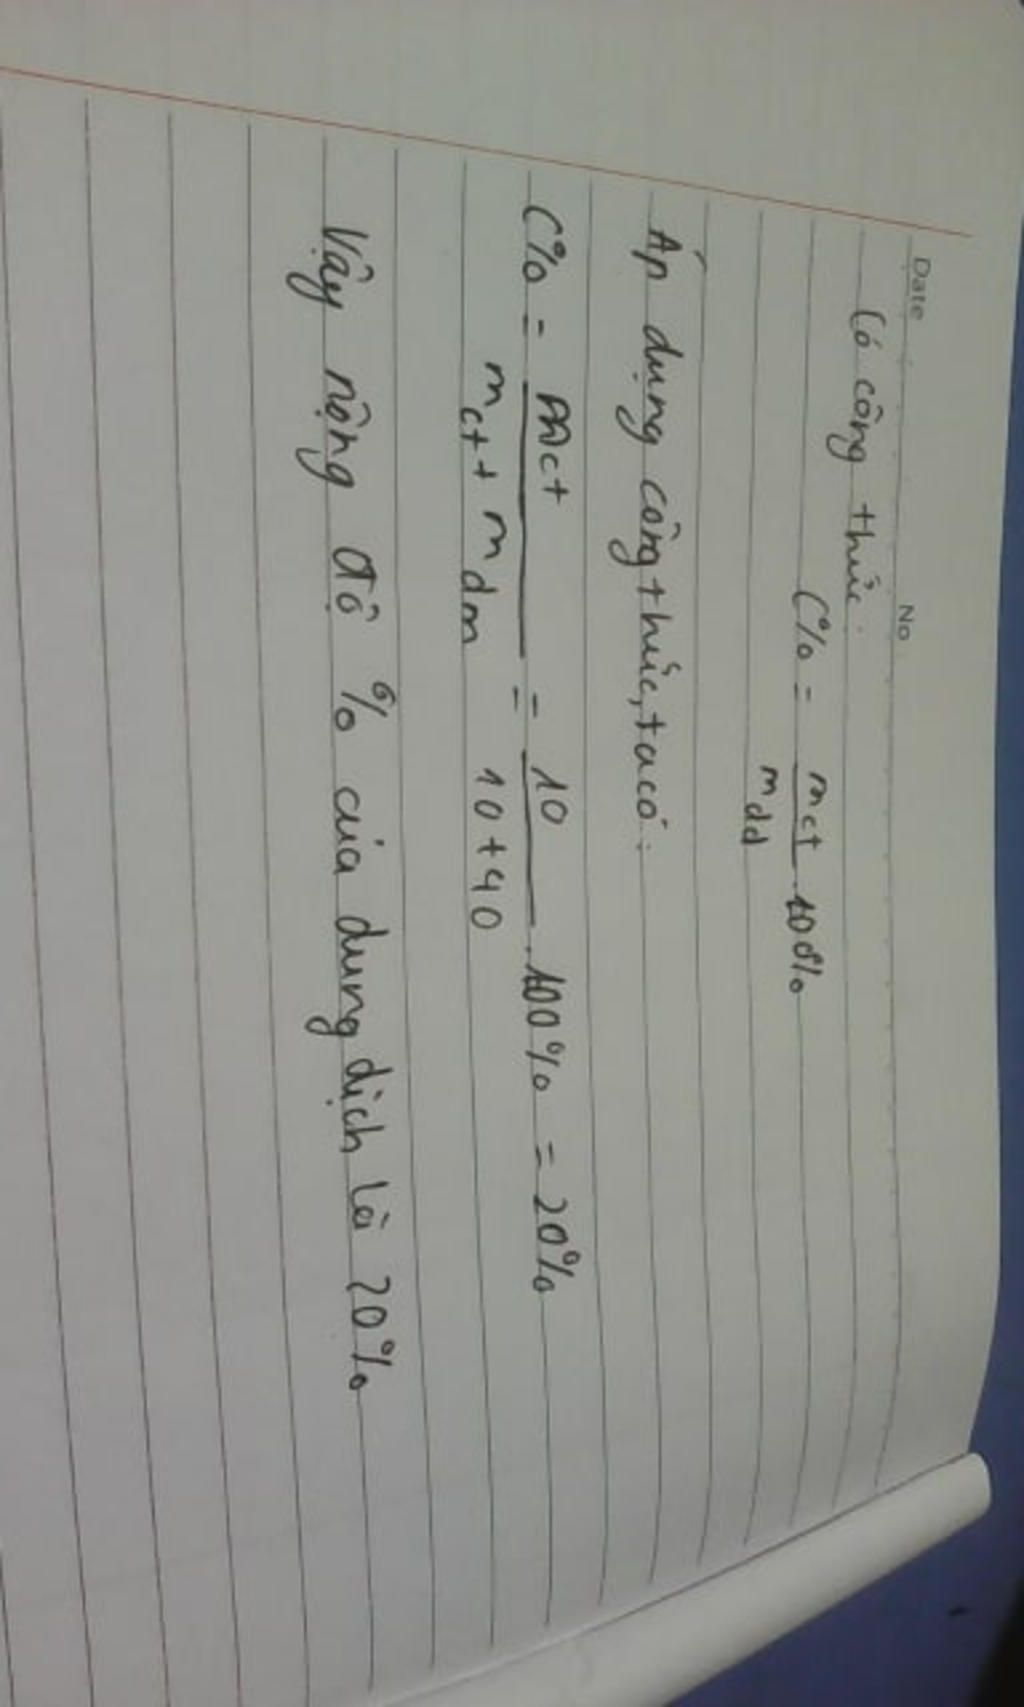 Date No
Có công thức:
C% = mct/mdd . 100%
Áp dụng công thức, ta có:
C% = mct/(mct + mdm) = 10/(10+40) . 100% = 20%
Vậy nồng độ % của dung dịch là 20%